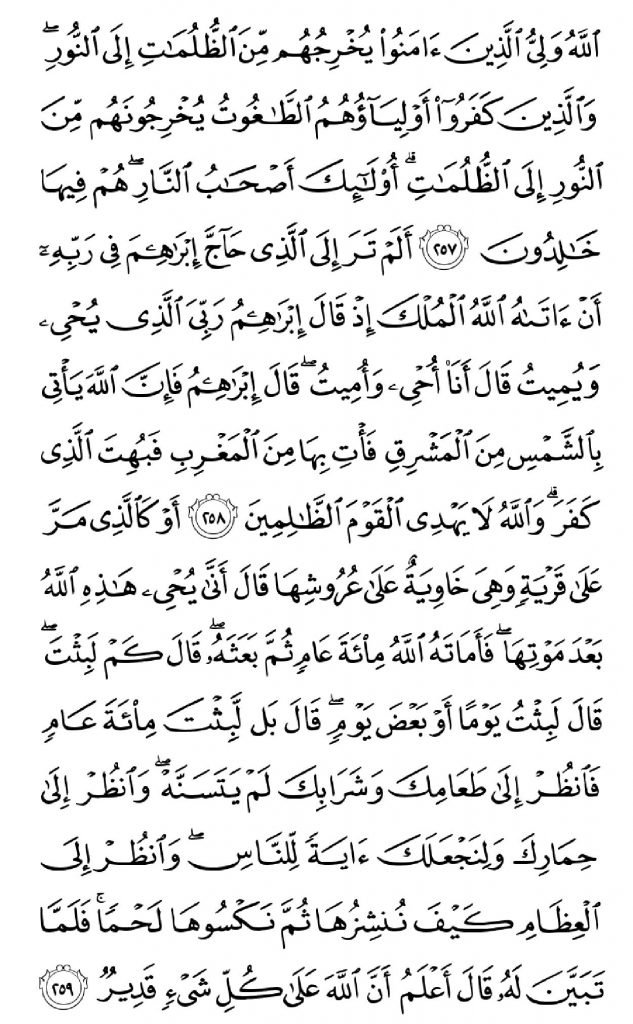 ٱللَّهُ وَلِيُّ ٱلَّذِينَ ءَامَنُوا۟ يُخْرِجُهُم مِّنَ ٱلظُّلُمَـٰتِ إِلَى ٱلنُّورِ ۖ
وَٱلَّذِينَ كَفَرُوٓا۟ أَوْلِيَآؤُهُمُ ٱلطَّـٰغُوتُ يُخْرِجُونَهُم مِّنَ
ٱلنُّورِ إِلَى ٱلظُّلُمَـٰتِ ۗ أُو۟لَـٰٓئِكَ أَصْحَـٰبُ ٱلنَّارِ ۖ هُمْ فِيهَا
خَـٰلِدُونَ ٢٥٧ أَلَمْ تَرَ إِلَى ٱلَّذِى حَآجَّ إِبْرَٰهِـۧمَ فِى رَبِّهِۦٓ
أَنْ ءَاتَىٰهُ ٱللَّهُ ٱلْمُلْكَ إِذْ قَالَ إِبْرَٰهِـۧمُ رَبِّىَ ٱلَّذِى يُحْىِۦ
وَيُمِيتُ قَالَ أَنَا۠ أُحْىِۦ وَأُمِيتُ ۖ قَالَ إِبْرَٰهِـۧمُ فَإِنَّ ٱللَّهَ يَأْتِى
بِٱلشَّمْسِ مِنَ ٱلْمَشْرِقِ فَأْتِ بِهَا مِنَ ٱلْمَغْرِبِ فَبُهِتَ ٱلَّذِى
كَفَرَ ۗ وَٱللَّهُ لَا يَهْدِى ٱلْقَوْمَ ٱلظَّـٰلِمِينَ ٢٥٨ أَوْ كَٱلَّذِى مَرَّ
عَلَىٰ قَرْيَةٍ وَهِىَ خَاوِيَةٌ عَلَىٰ عُرُوشِهَا قَالَ أَنَّىٰ يُحْىِۦ هَـٰذِهِ ٱللَّهُ
بَعْدَ مَوْتِهَا ۖ فَأَمَاتَهُ ٱللَّهُ مِا۟ئَةَ عَامٍ ثُمَّ بَعَثَهُۥ ۖ قَالَ كَمْ لَبِثْتَ ۖ
قَالَ لَبِثْتُ يَوْمًا أَوْ بَعْضَ يَوْمٍ ۖ قَالَ بَل لَّبِثْتَ مِا۟ئَةَ عَامٍ
فَٱنظُرْ إِلَىٰ طَعَامِكَ وَشَرَابِكَ لَمْ يَتَسَنَّهْ ۖ وَٱنظُرْ إِلَىٰ
حِمَارِكَ وَلِنَجْعَلَكَ ءَايَةً لِّلنَّاسِ ۖ وَٱنظُرْ إِلَى
ٱلْعِظَامِ كَيْفَ نُنشِزُهَا ثُمَّ نَكْسُوهَا لَحْمًا ۚ فَلَمَّا
تَبَيَّنَ لَهُۥ قَالَ أَعْلَمُ أَنَّ ٱللَّهَ عَلَىٰ كُلِّ شَىْءٍ قَدِيرٌ ٢٥٩